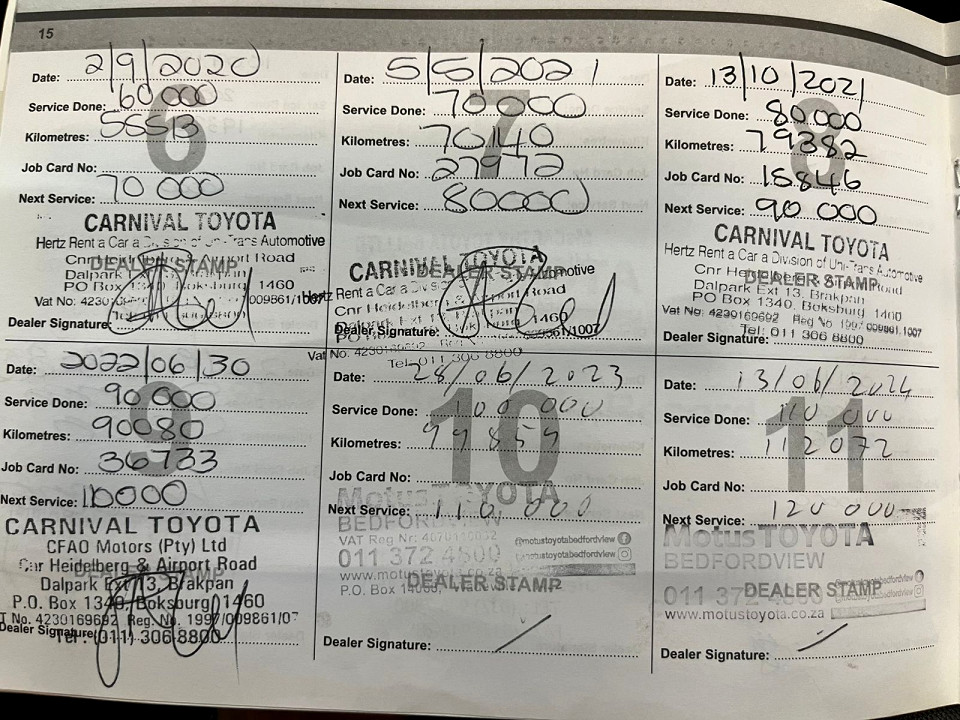 15
6
Date: 2/9/2020
Service Done: 60000
Kilometres: 56513
Job Card No:
Next Service: 70 000
CARNIVAL TOYOTA
Hertz Rent a Car a Division of Uni-Trans Automotive
Cnr Airport Road
DEALER STAMP
Dalpark Brakpan
PO Box 1340, Boksburg 1460
Vat No: 4230 009861/1007
Dealer Signature:
7
Date: 5/5/2021
Service Done: 70000
Kilometres: 70140
Job Card No: 27972
Next Service: 80000
CARNIVAL TOYOTA
DEALER STAMP
Hertz Rent a Car a Division Automotive
Cnr Heidelberg Airport Road
Dalpark Ext 1
Dealer Signature:
1460
Vat No: 4230169692
Tel: 011 306 8800
8
Date: 13/10/2021
Service Done: 80000
Kilometres: 79382
Job Card No: 15846
Next Service: 90 000
CARNIVAL TOYOTA
Hertz Rent a Car a Division of Uni-Trans Automotive
Cnr Road
DEALER STAMP
Dalpark Ext 13, Brakpan
PO Box 1340, Boksburg 1460
Vat No: 4230169692 Reg No 1997 009861 1007
Tel: 011 306 8800
Dealer Signature:
9
Date: 2022/06/30
Service Done: 90000
Kilometres: 90080
Job Card No: 36733
Next Service: 10000
CARNIVAL TOYOTA
CFAO Motors (Pty) Ltd
Cnr Heidelberg & Airport Road
DEALER STAMP
Dalpark Ext 13, Brakpan
P.O. Box 1340, Boksburg 1460
T No. 4230169692 Reg. No. 1997/009861/07
Dealer Signature:
Tel: (011) 306-8800
10
Date: 28/06/2023
Service Done: 100 000
Kilometres: 99859
Job Card No:
Next Service: 110 000
Motus TOYOTA
BEDFORDVIEW
VAT Reg Nr:
@motustoyotabedfordview
011 372 4800
www.motustoyota.co.za
DEALER STAMP
P.O. Box
Dealer Signature:
11
Date: 13/06/2024
Service Done: 110 000
Kilometres: 112072
Job Card No:
Next Service: 120 000
Motus TOYOTA
BEDFORDVIEW
011 372
DEALER STAMP
www.motustoyota.co.za
Dealer Signature: